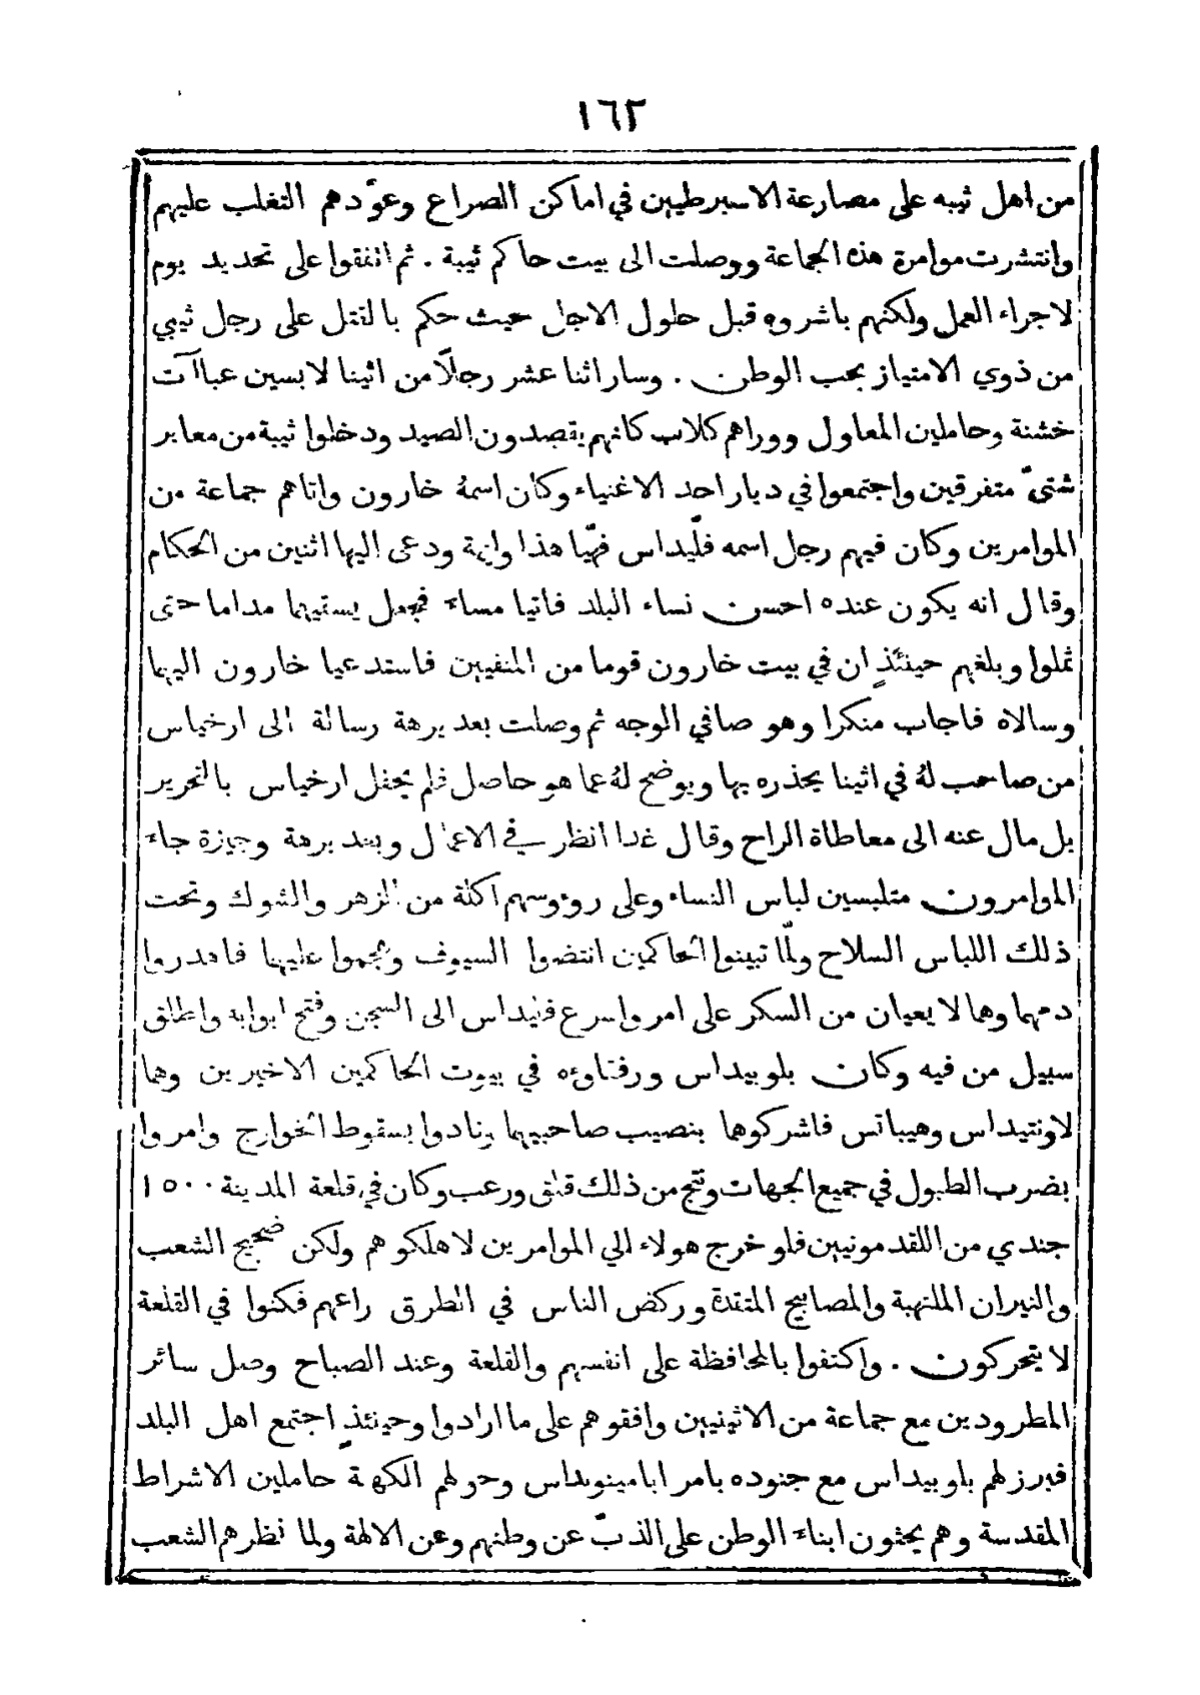 ١٦٢
من اهل ثيبه على مصارعة الاسبرطيين في اماكن الصراع وعوّدهم التغلب عليهم
وانتشرت موامرة هذه الجماعة ووصلت الى بيت حاكم ثيبة . ثم اتفقوا على تحديد يوم
لاجراء العمل ولكنهم باشروه قبل حلول الاجل حيث حكم بالقتل على رجل ثيبي
من ذوي الامتياز بحب الوطن . وسار اثنا عشر رجلاً من اثينا لابسين عباآت
خشنة وحاملين المعاول ووراهم كلاب كانهم يقصدون الصيد ودخلوا ثيبة من معابر
شتىّ متفرقين واجتمعوا في ديار احد الاغنياء وكان اسمهُ خارون واتاهم جماعة من
الموامرين وكان فيهم رجل اسمه فلّيداس فهيّا هذا وليمة ودعى اليها اثنين من الحكام
وقال انه يكون عنده احسن نساء البلد فاتيا مساء فجعل يسقيهما مداما حتى
ثملوا وبلغهم حينئذٍ ان في بيت خارون قوما من المنفيين فاستدعيا خارون اليهما
وسالاه فاجاب منكرا وهو صافي الوجه ثم وصلت بعد برهة رسالة الى ارخياس
من صاحب لهُ في اثينا يحذره بها ويوضح لهُ عما هو حاصل فلم يحفل ارخياس بالتحرير
بل مال عنه الى معاطاة الراح وقال غدا انظر في الاعمال وبعد برهة وجيزة جاء
الموامرون متلبسين لباس النساء وعلى روءوسهم اكلة من الزهر والشوك وتحت
ذلك اللباس السلاح ولمّا تبينوا الحاكمين انتضوا السيوف وهجموا عليهما فاهدروا
دمهما وهما لا يعيان من السكر على امر واسرع فليداس الى السجن وفتح ابوابه واطلق
سبيل من فيه وكان بلوبيداس ورفقاوءه في بيوت الحاكمين الاخيرين وهما
لاونتيداس وهيباتس فاشركوهما بنصيب صاحبيهما ونادوا بسقوط الخوارج وامروا
بضرب الطبول في جميع الجهات ونتج من ذلك قلق ورعب وكان في قلعة المدينة ١٥٠٠
جندي من اللقدمونيين فلو خرج هولاء الي الموامرين لاهلكوهم ولكن ضجيج الشعب
والنيران الملتهبة والمصابيح المتقدة وركض الناس في الطرق راعهم فكنوا في القلعة
لا يتحركون . واكتفوا بالمحافظة على انفسهم والقلعة وعند الصباح وصل سائر
المطرودين مع جماعة من الاثينيين وافقوهم على ما ارادوا وحينئذٍ اجتمع اهل البلد
فبرز لهم بلوبيداس مع جنوده بامر ابامينونداس وحولهم الكهنة حاملين الاشراط
المقدسة وهم يحثون ابناء الوطن على الذبّ عن وطنهم وعن الالهة ولما نظرهم الشعب